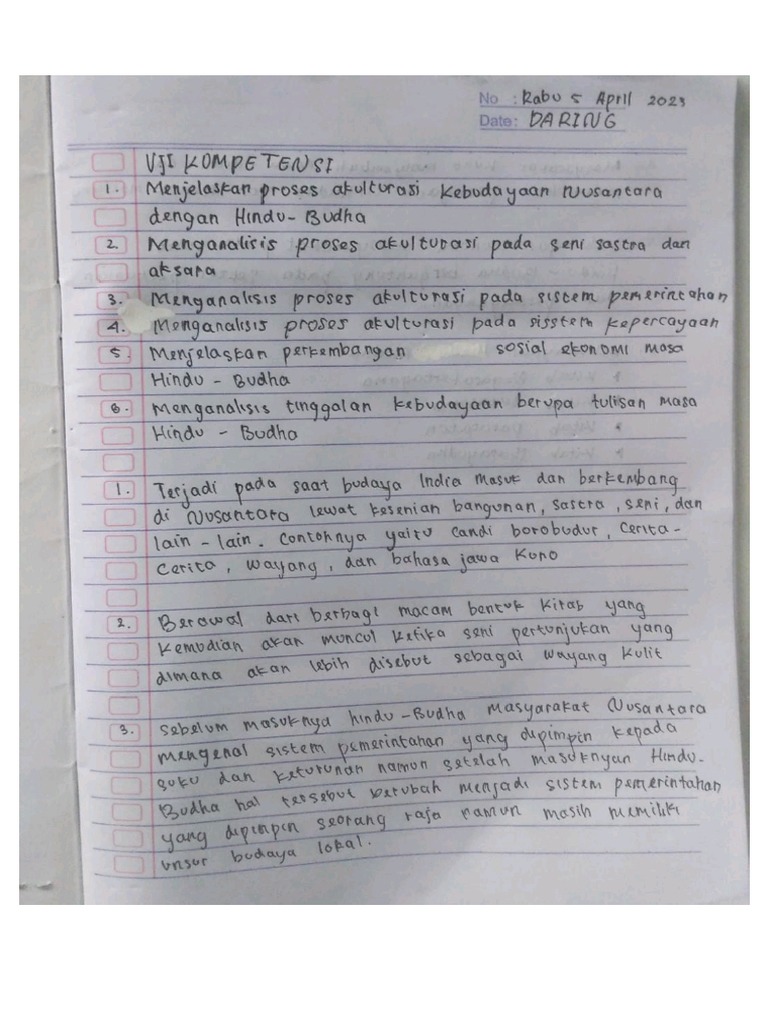 No : Rabu 5 April 2023
Date: DARING
UJI KOMPETENSI
1. Menjelaskan proses akulturasi kebudayaan Nusantara
dengan Hindu - Budha
2. Menganalisis proses akulturasi pada seni sastra dan
aksara
3. Menganalisis proses akulturasi pada sistem pemerintahan
4. Menganalisis proses akulturasi pada sisstem kepercayaan
5. Menjelaskan perkembangan sosial ekonomi masa
Hindu - Budha
6. Menganalisis tinggalan kebudayaan berupa tulisan masa
Hindu - Budha
1. Terjadi pada saat budaya India masuk dan berkembang
di Nusantara lewat kesenian bangunan, sastra, seni, dan
lain - lain. Contohnya yaitu candi borobudur, cerita-
cerita, wayang, dan bahasa jawa kuno
2. Berawal dari berbagi macam bentuk kitab yang
kemudian akan muncul ketika seni pertunjukan yang
dimana akan lebih disebut sebagai wayang kulit
3. Sebelum masuknya hindu - Budha Masyarakat Nusantara
mengenal sistem pemerintahan yang dipimpin kepada
suku dan keturunan namun setelah masuknyan Hindu-
Budha hal tersebut berubah menjadi sistem pemerintahan
yang dipimpin seorang raja namun masih memiliki
unsur budaya lokal.